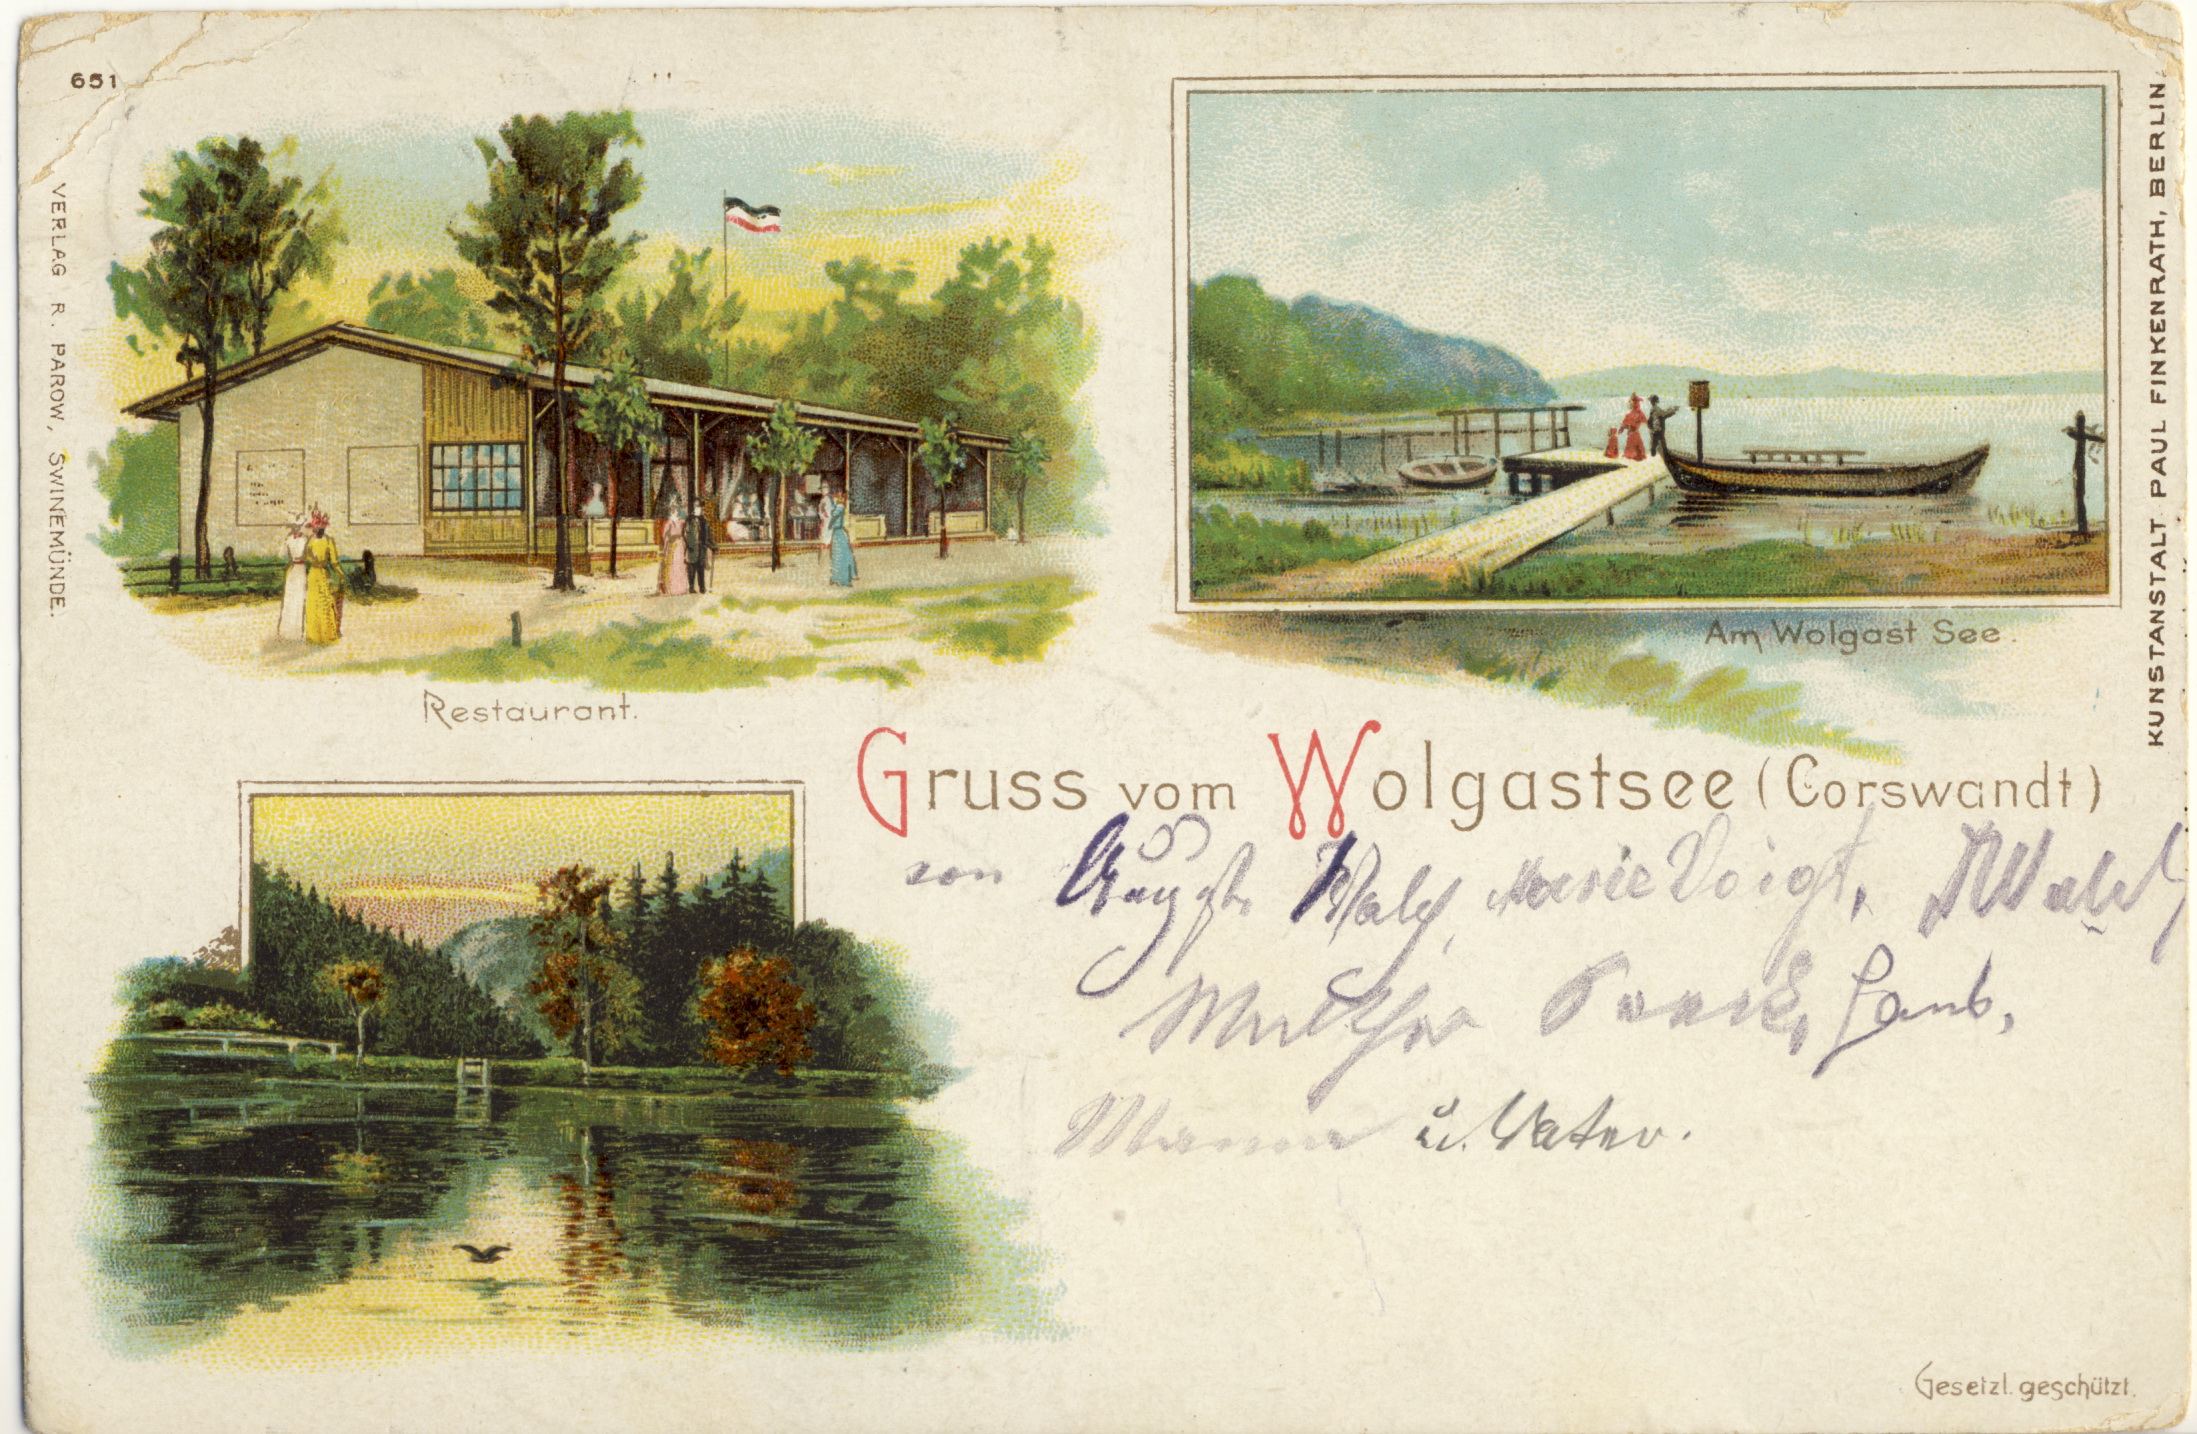 651
VERLAG R. PAROW, SWINEMÜNDE.
Restaurant.
Am Wolgast See.
KUNSTANSTALT PAUL FINKENRATH, BERLIN.
Gruss vom Wolgastsee (Corswandt)
von Marie Voigt,
u. Vater.
Gesetzl. geschützt.